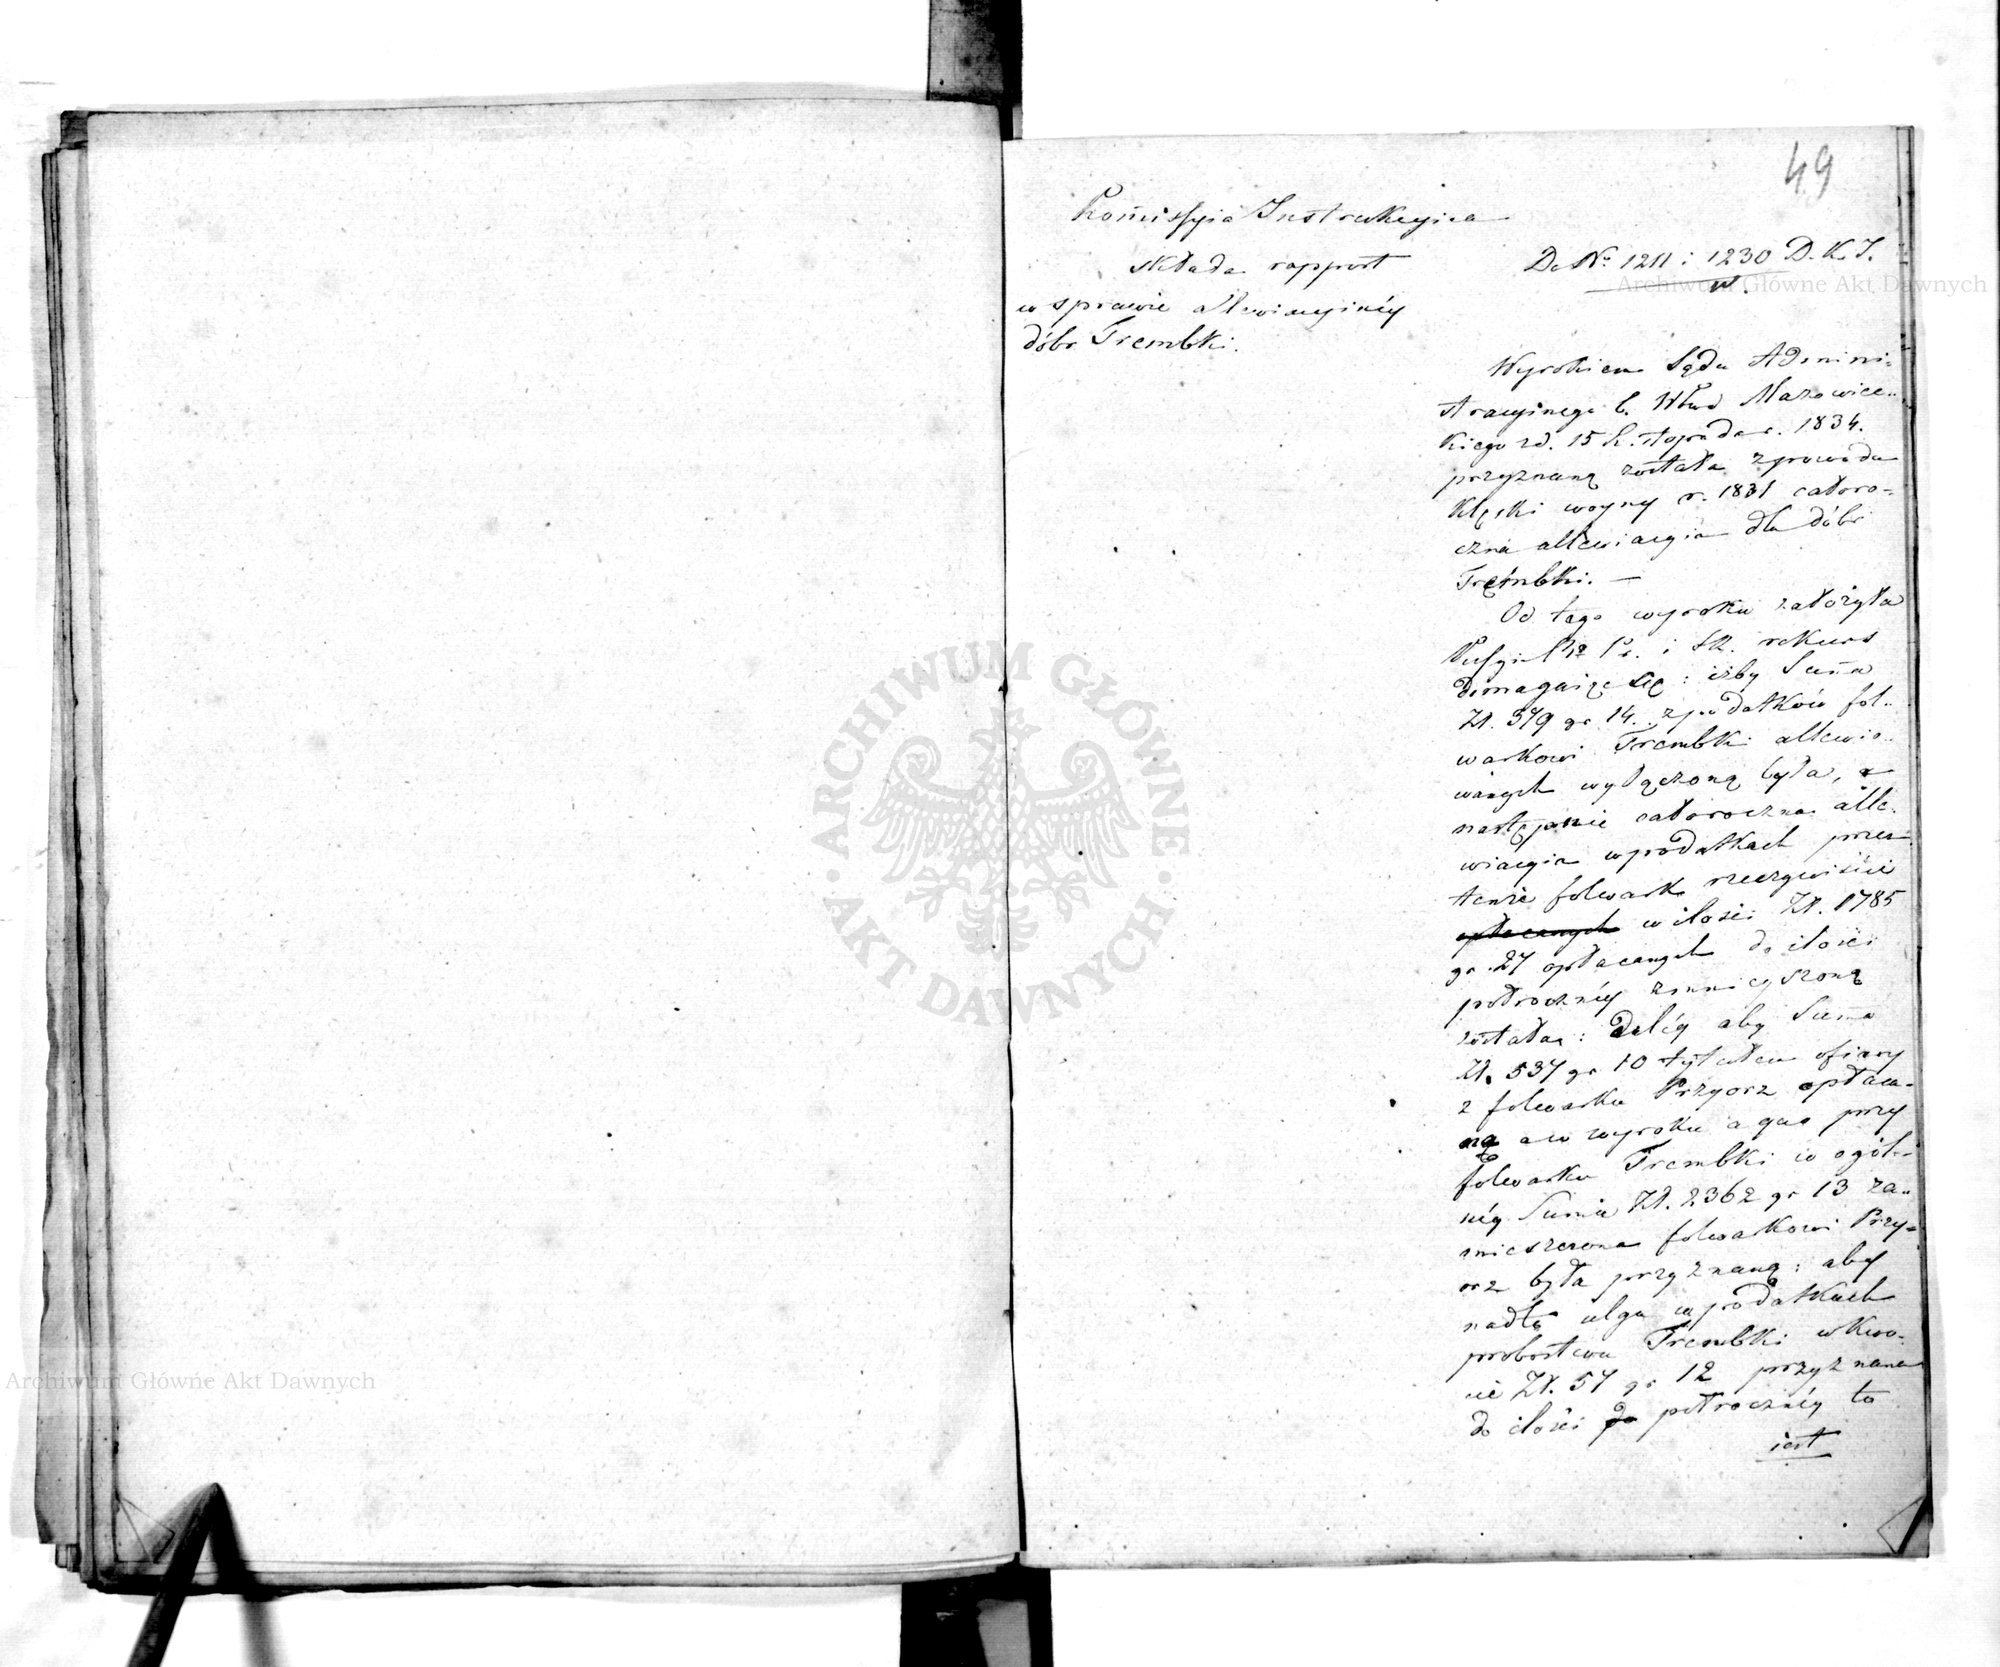 49
Kom̄issyia Instrukcyina
składa rapport
w sprawie allewiacyinéy
dóbr Trembki.
Do No 1211 i 1230 D. K. I.
Wyrokiem Sądu Admini-
stracyinego b. Wdwa Mazowiec-
kiego z d. 15 Listopada r. 1834.
przyznaną została z powodu
klęski woyny r. 1831 całoro-
czna allewiacyia dla dóbr
Trembki. —
Od tego wyroku założyła
i Sk. rekurs
domagaiąc się: iżby Sum̄a
Zł. 579 gr 14. z podatków fol-
warkowi Trembki allewio-
wanych wyłączoną była, a
następnie całoroczna alle-
wiacyia w podatkach przez
tenże folwark rzeczywiście
opłacanych w ilości Zł. 1785
gr. 27 opłacanych do ilości
półrocznéy zmnieyszoną
została: Daléy aby Sum̄a
Zł. 537 gr 10 tytułem ofiary
z folwarku Przyorz opłaca-
na a w wyroku a quo przy
folwarku Trembki w ogól-
néy Sumie Zł. 2362 gr 13 za-
mieszczona folwarkowi Przy-
orz była przyznaną: aby
nadto ulga w podatkach
probostwu Trembki w kwo-
cie Zł. 57 gr 12 przyznana
do ilości półrocznéy to
iest
Archiwum Główne Akt Dawnych
ARCHIWUM GŁÓWNE
AKT DAWNYCH
Archiwum Główne Akt Dawnych